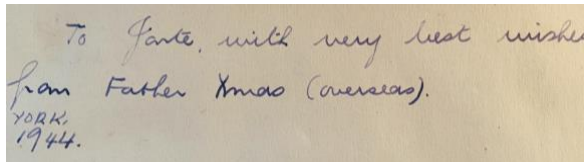 To Jante, with very best wishe
from Father Xmas (overseas).
YORK,
1944.